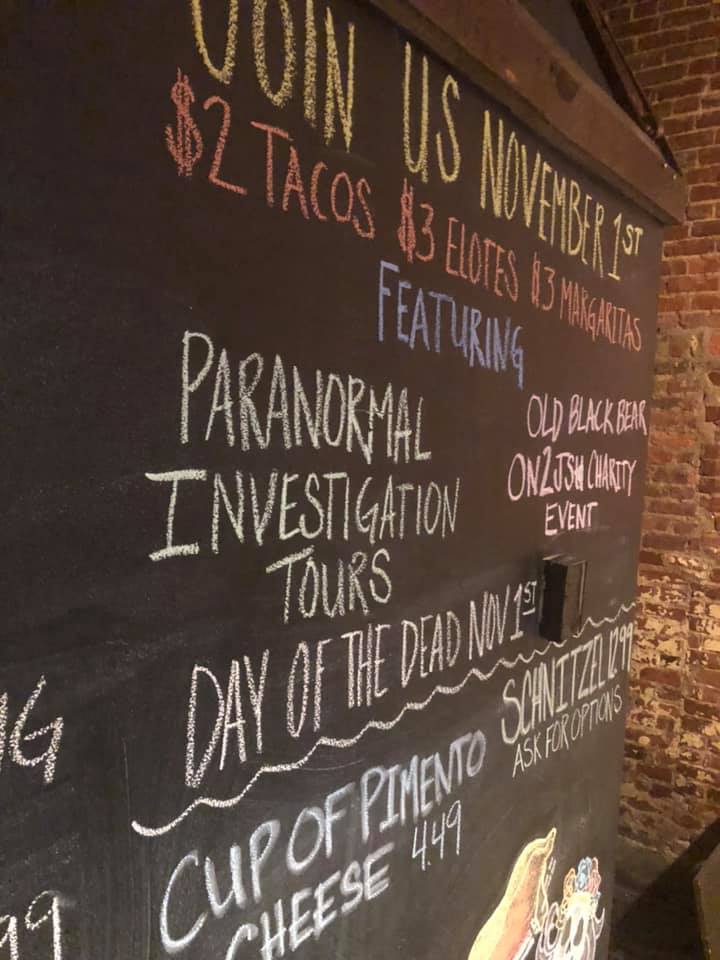 JOIN US NOVEMBER 1ST
$2 TACOS $3 ELOTES $3 MARGARITAS
FEATURING
PARANORMAL
INVESTIGATION
TOURS
OLD BLACK BEAR
CHARITY
EVENT
DAY OF THE DEAD NOV 1ST
SCHNITZEL 12.99
ASK FOR OPTIONS
CUP OF PIMENTO
CHEESE 4.49